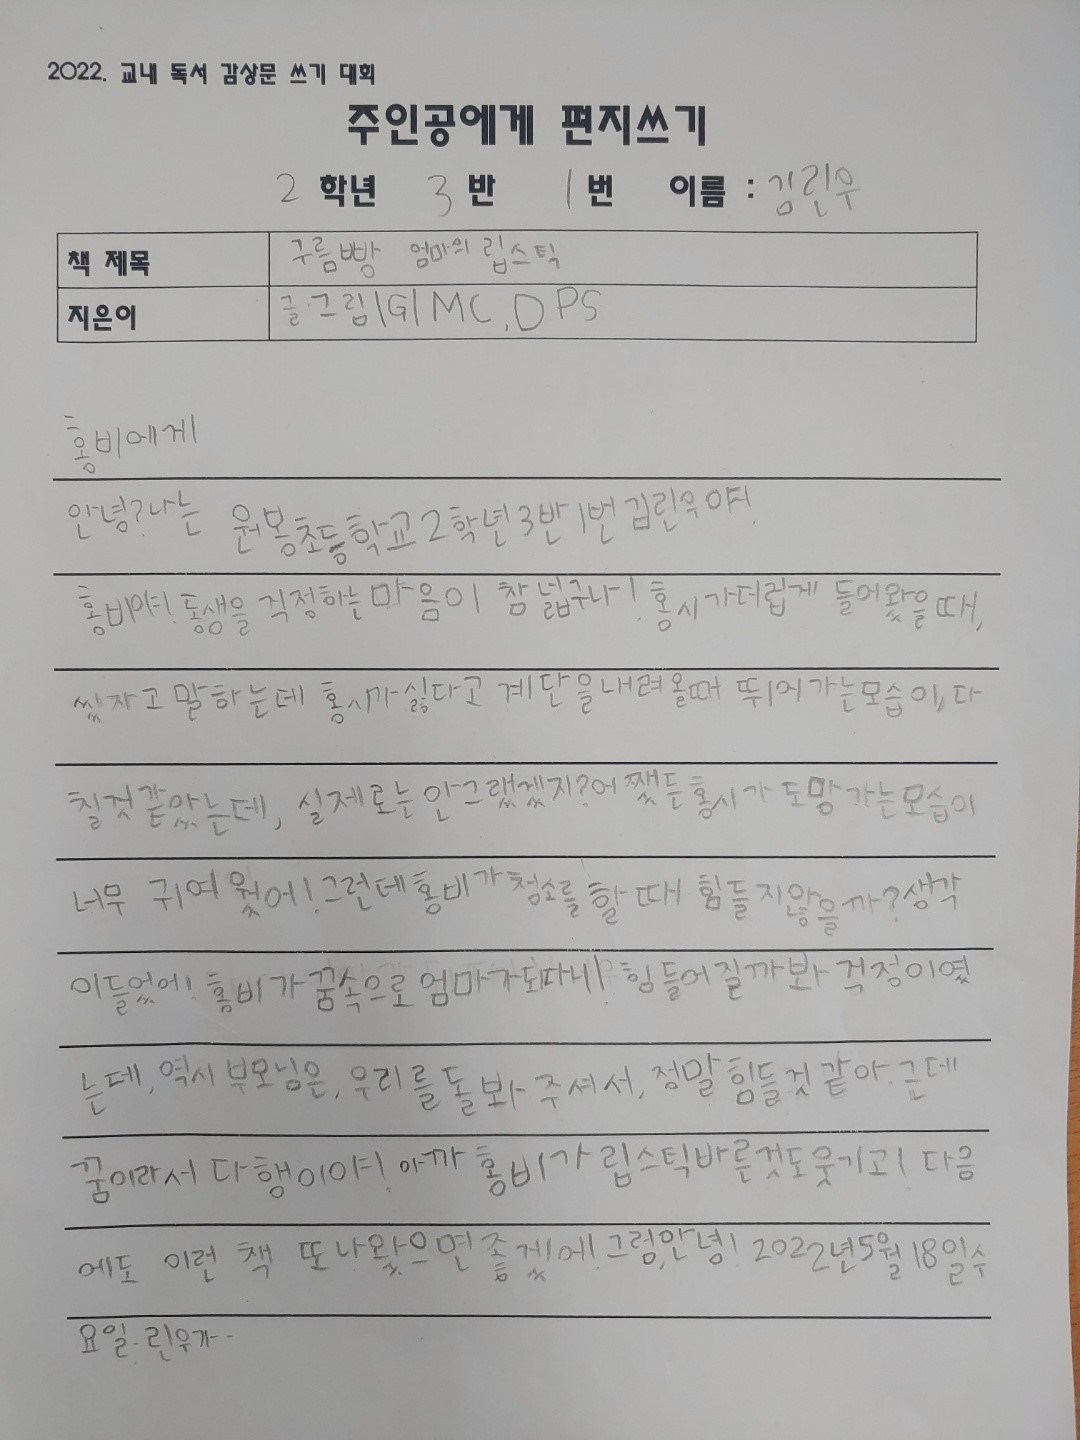 2022. 교내 독서 감상문 쓰기 대회
주인공에게 편지쓰기
2 학년 3 반 1 번 이름 : 김린우
책 제목 구름빵 엄마의 립스틱
지은이 글·그림 GIMC, DPS
홍비에게
안녕? 나는 원봉초등학교 2학년 3반 1번 김린우야!
홍비야! 동생을 걱정하는 마음이 참 넓구나! 홍시가 더럽게 들어왔을때,
씼자고 말하는데 홍시가 싫다고 계단을 내려올때 뛰어가는 모습이, 다
칠것 같았는데, 실제로는 안그랬겠지? 어쨌든 홍시가 도망가는 모습이
너무 귀여웠어! 그런데 홍비가 청소를 할때 힘들지 않을까? 생각
이들었어! 홍비가 꿈속으로 엄마가 되다니! 힘들어질까봐 걱정이였
는데, 역시 부모님은, 우리를 돌봐 주셔서, 정말 힘들것 같아. 근데
꿈이라서 다행이야! 아까 홍비가 립스틱바른것도 웃기고! 다음
에도 이런 책 또 나왔으면 좋겠어! 그럼, 안녕! 2022년 5월 18일 수
요일. 린우가..